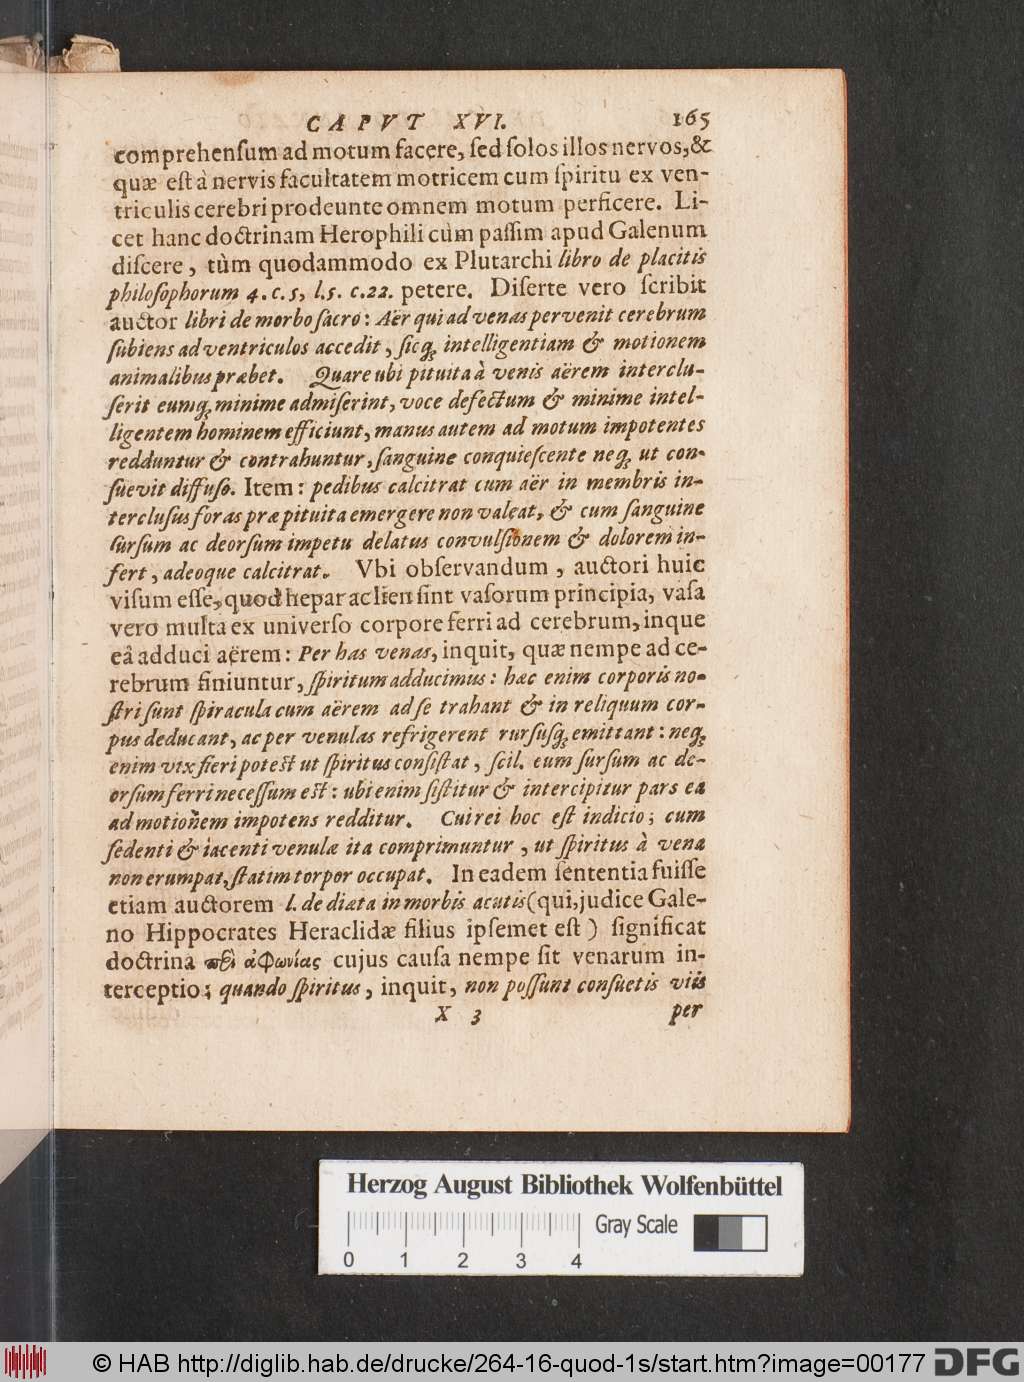 CAPVT XVI. 165
comprehensum ad motum facere, sed solos illos nervos, &
quæ est à nervis facultatem motricem cum spiritu ex ven-
triculis cerebri prodeunte omnem motum perficere. Li-
cet hanc doctrinam Herophili cùm passim apud Galenum
discere, tùm quodammodo ex Plutarchi libro de placitis
philosophorum 4. c. 5, l. 5. c. 22. petere. Diserte vero scribit
auctor libri de morbo sacro: Aër qui ad venas pervenit cerebrum
subiens ad ventriculos accedit, sicq; intelligentiam & motionem
animalibus præbet. Quare ubi pituita à venis aërem interclu-
serit eumq; minime admiserint, voce defectum & minime intel-
ligentem hominem efficiunt, manus autem ad motum impotentes
redduntur & contrahuntur, sanguine conquiescente neq; ut con-
suevit diffuso. Item: pedibus calcitrat cum aër in membris in-
terclusus foras præ pituita emergere non valeat, & cum sanguine
sursum ac deorsum impetu delatus convulsionem & dolorem in-
fert, adeoque calcitrat. Vbi observandum, auctori huic
visum esse, quod hepar ac lien sint vasorum principia, vasa
vero multa ex universo corpore ferri ad cerebrum, inque
eâ adduci aërem: Per has venas, inquit, quæ nempe ad ce-
rebrum finiuntur, spiritum adducimus: hæc enim corporis no-
stri sunt spiracula cum aërem ad se trahant & in reliquum cor-
pus deducant, ac per venulas refrigerent rursusq; emittant: neq;
enim vix fieri potest ut spiritus consistat, scil. eum sursum ac de-
orsum ferri necessum est: ubi enim sistitur & intercipitur pars ea
ad motionem impotens redditur. Cui rei hoc est indicio; cum
sedenti & iacenti venulæ ita comprimuntur, ut spiritus à vena
non erumpat, statim torpor occupat. In eadem sententia fuisse
etiam auctorem l. de diæta in morbis acutis (qui, judice Gale-
no Hippocrates Heraclidæ filius ipsemet est) significat
doctrina περὶ ἀφωνίας cujus causa nempe sit venarum in-
terceptio; quando spiritus, inquit, non possunt consuetis viis
X 3 per
Herzog August Bibliothek Wolfenbüttel
Gray Scale
0 1 2 3 4
© HAB http://diglib.hab.de/drucke/264-16-quod-1s/start.htm?image=00177 DFG